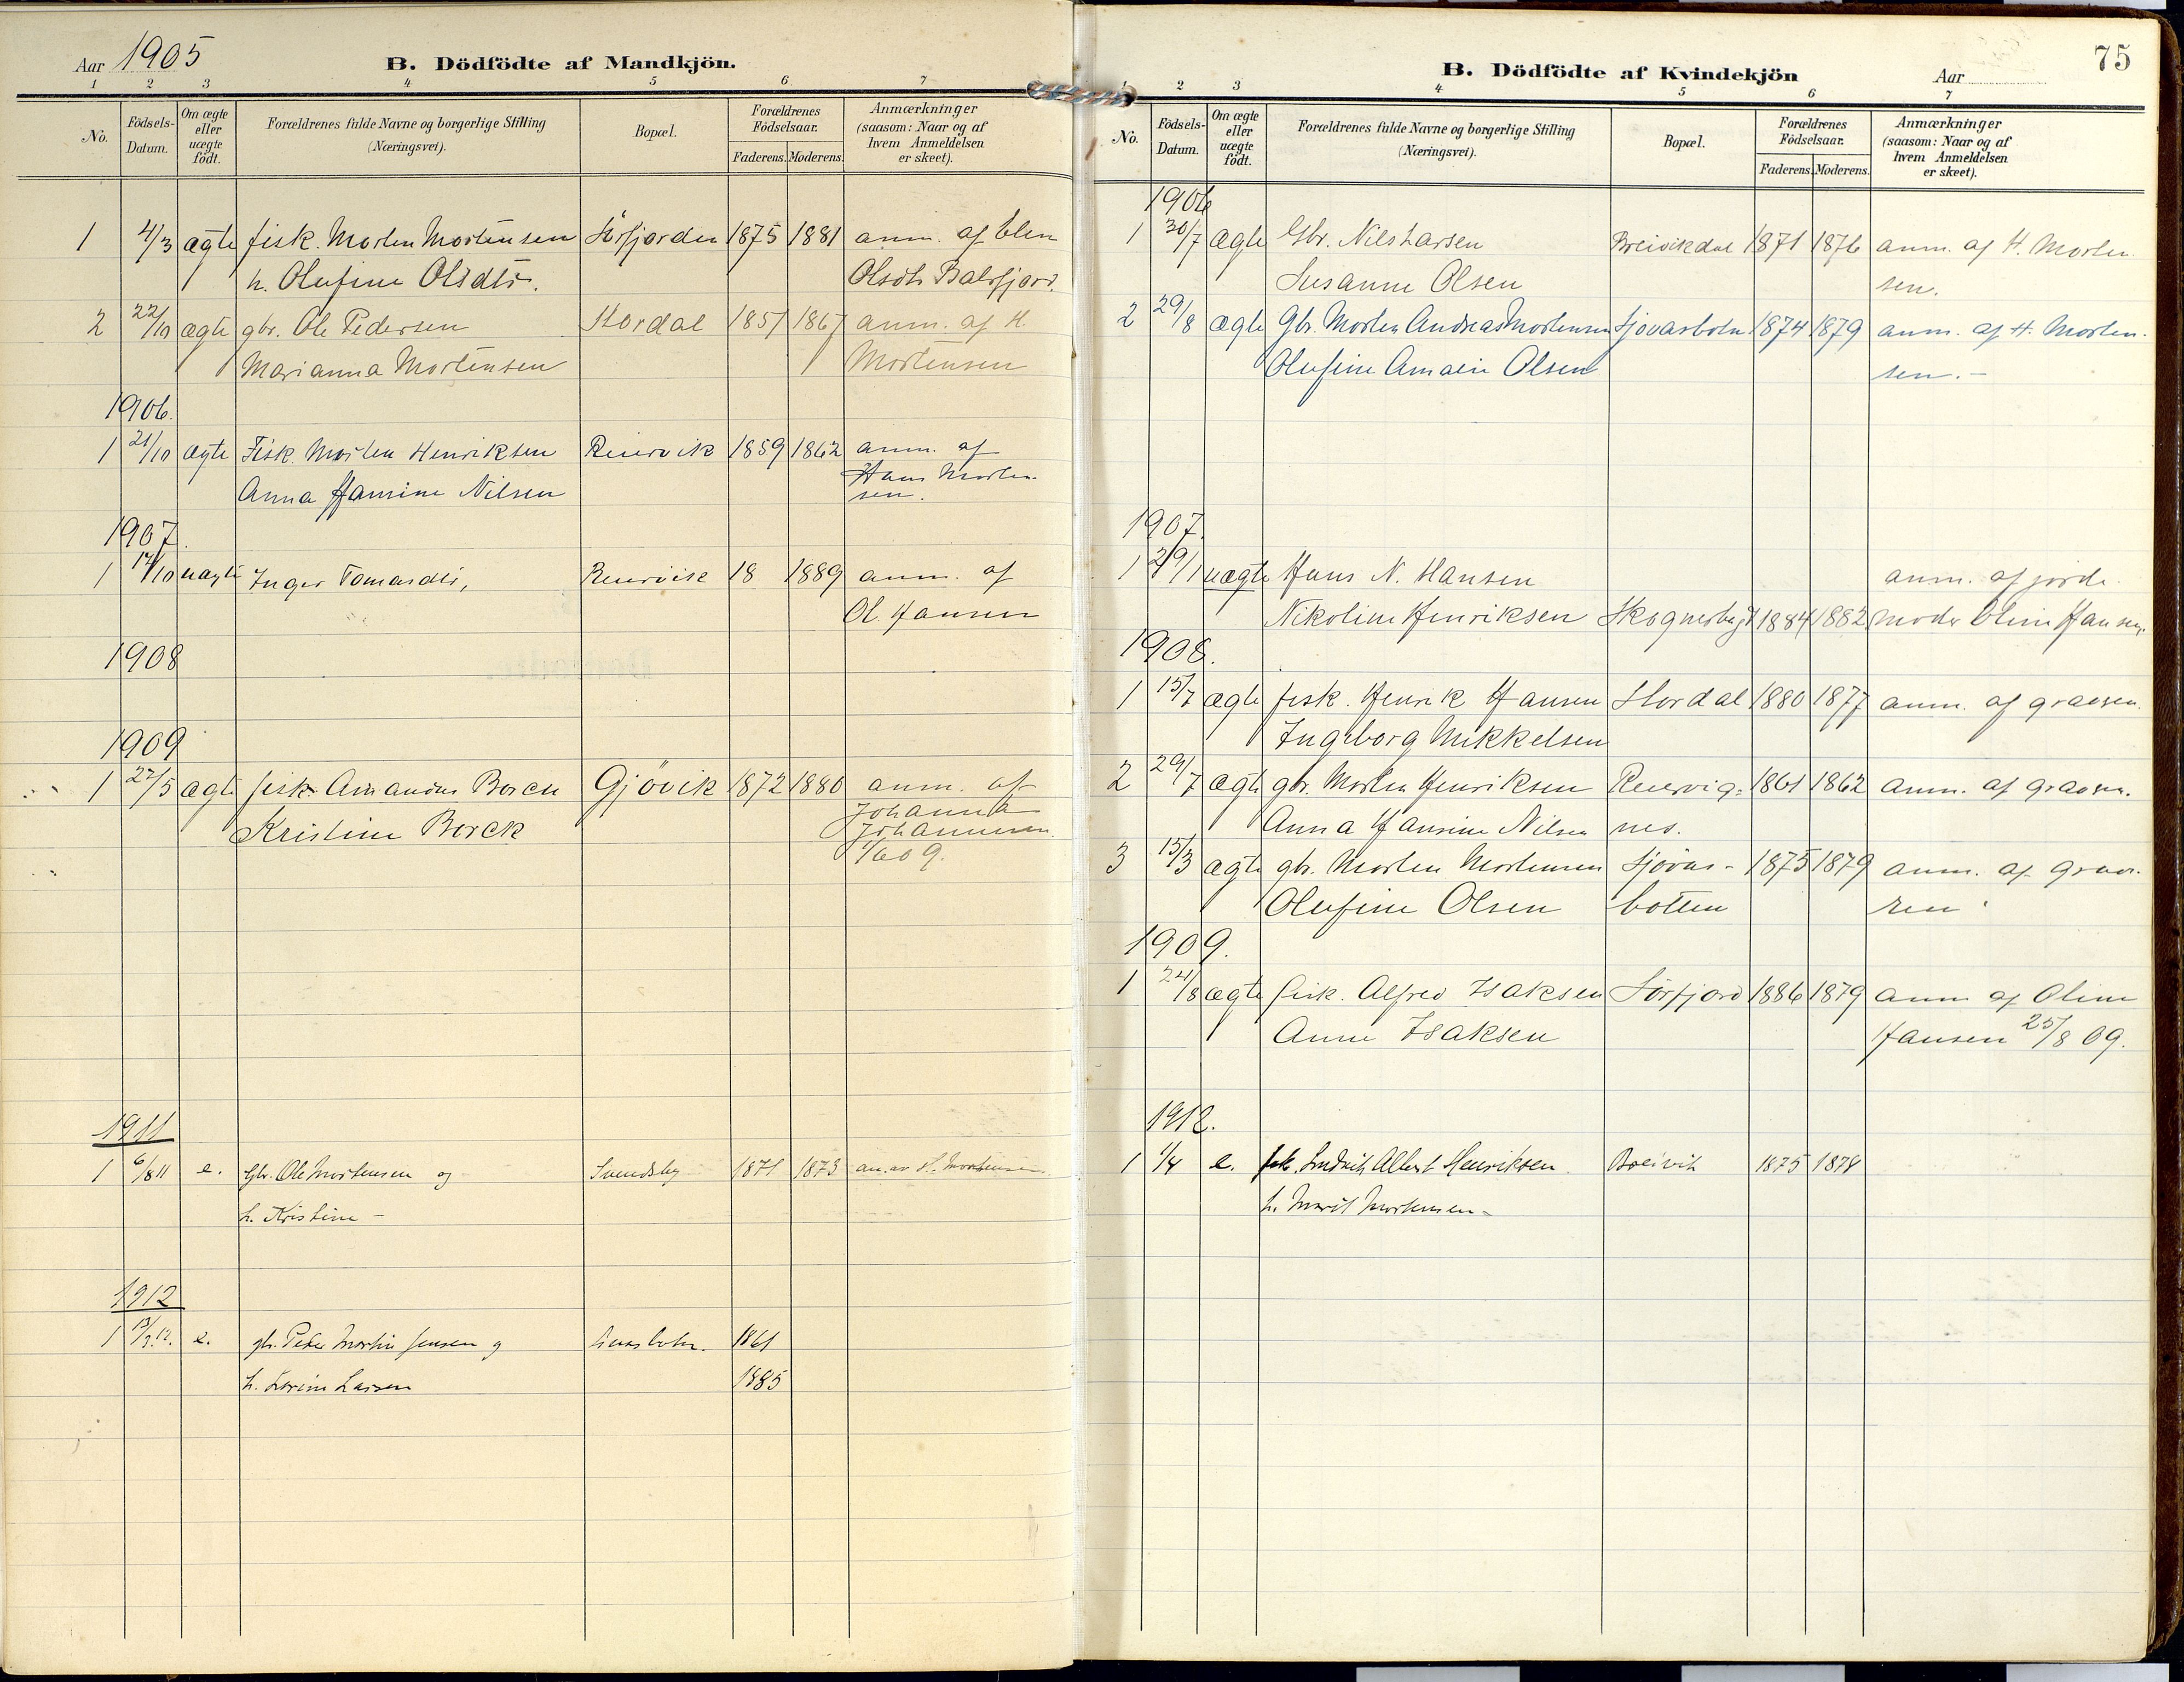 Aar 1905
B. Dödfödte af Mandkjön.
1 2 3 4 5 6 7
No.
Födsels-Datum.
Om ægte eller uægte födt.
Forældrenes fulde Navne og borgerlige Stilling (Næringsvei).
Bopæl.
Forældrenes Födselsaar.
Faderens. Moderens.
Anmærkninger (saasom: Naar og af hvem Anmeldelsen er skeet).
1 4/3 ægte fisk. Morten Mortensen Sörfjorden 1875 1881 anm. af Elen
h. Olufine Olsdtr. Olsdtr Balsfjord.
2 22/10 ægte gbr. Ole Pedersen Stordal 1857 1867 anm. af H.
Marianna Mortensen Mortensen
1906.
1 21/10 ægte Fisk. Morten Henriksen Reiervik 1859 1862 anm. af
Anna Hansine Nilsen Hans Morten-
sen.
1907.
1 17/10 uægte Inger Tomasdtr, Reiervik 18 1889 anm. af
Ol. Hansen
1908
1909
1 27/5 ægte fisk. Amandus Borch Gjövik 1872 1880 anm. af
Kristine Borck Johanna
Johannesen
1/6 09.
1911
1 6/8 11 e. Gbr. Ole Mortensen og Svendsby 1871 1873 an. av H. Mortensen
h. Kristine –
1912
1 e. gb. Peder Martin Jensen og 1861
h. Larsen 1885
75
B. Dödfödte af Kvindekjön
Aar
1 2 3 4 5 6 7
No.
Födsels-Datum.
Om ægte eller uægte födt.
Forældrenes fulde Navne og borgerlige Stilling (Næringsvei).
Bopæl.
Forældrenes Födselsaar.
Faderens. Moderens.
Anmærkninger (saasom: Naar og af hvem Anmeldelsen er skeet).
1906
1 30/7 ægte Gbr. Nils Larsen Breivikdal 1871 1876 anm. af H. Morten
Susanne Olsen sen.
2 29/8 ægte Gbr. Morten Andreas Mortensen Sjovasbotn 1874 1879 anm. af H. Morten-
Olufine Olsen sen. –
1907.
1 29/1 uægte Hans N. Hansen anm. af jorde
Nikoline Henriksen 1884 1882 moder Oline Hansen.
1908.
1 15/7 ægte fisk. Henrik Hansen Stordal 1880 1877 anm. af graveren.
Ingeborg Mikkelsen
2 29/7 ægte gbr. Morten Henriksen Reiervig- 1861 1862 anm. af graveren.
Anna Hansine Nilsen nes.
3 15/3 ægte gbr. Morten Mortensen Sjövas- 1875 1879 anm. af grave-
Olufine Olsen botten ren
1909.
1 24/8 ægte fisk. Alfred Isaksen Sörfjord 1886 1879 anm af Oline
Anne Isaksen Hansen 25/8 09.
1912.
1 1/4 e. fsk. Albert Henriksen Breivik 1875 1878
h. Marit Mortensen –